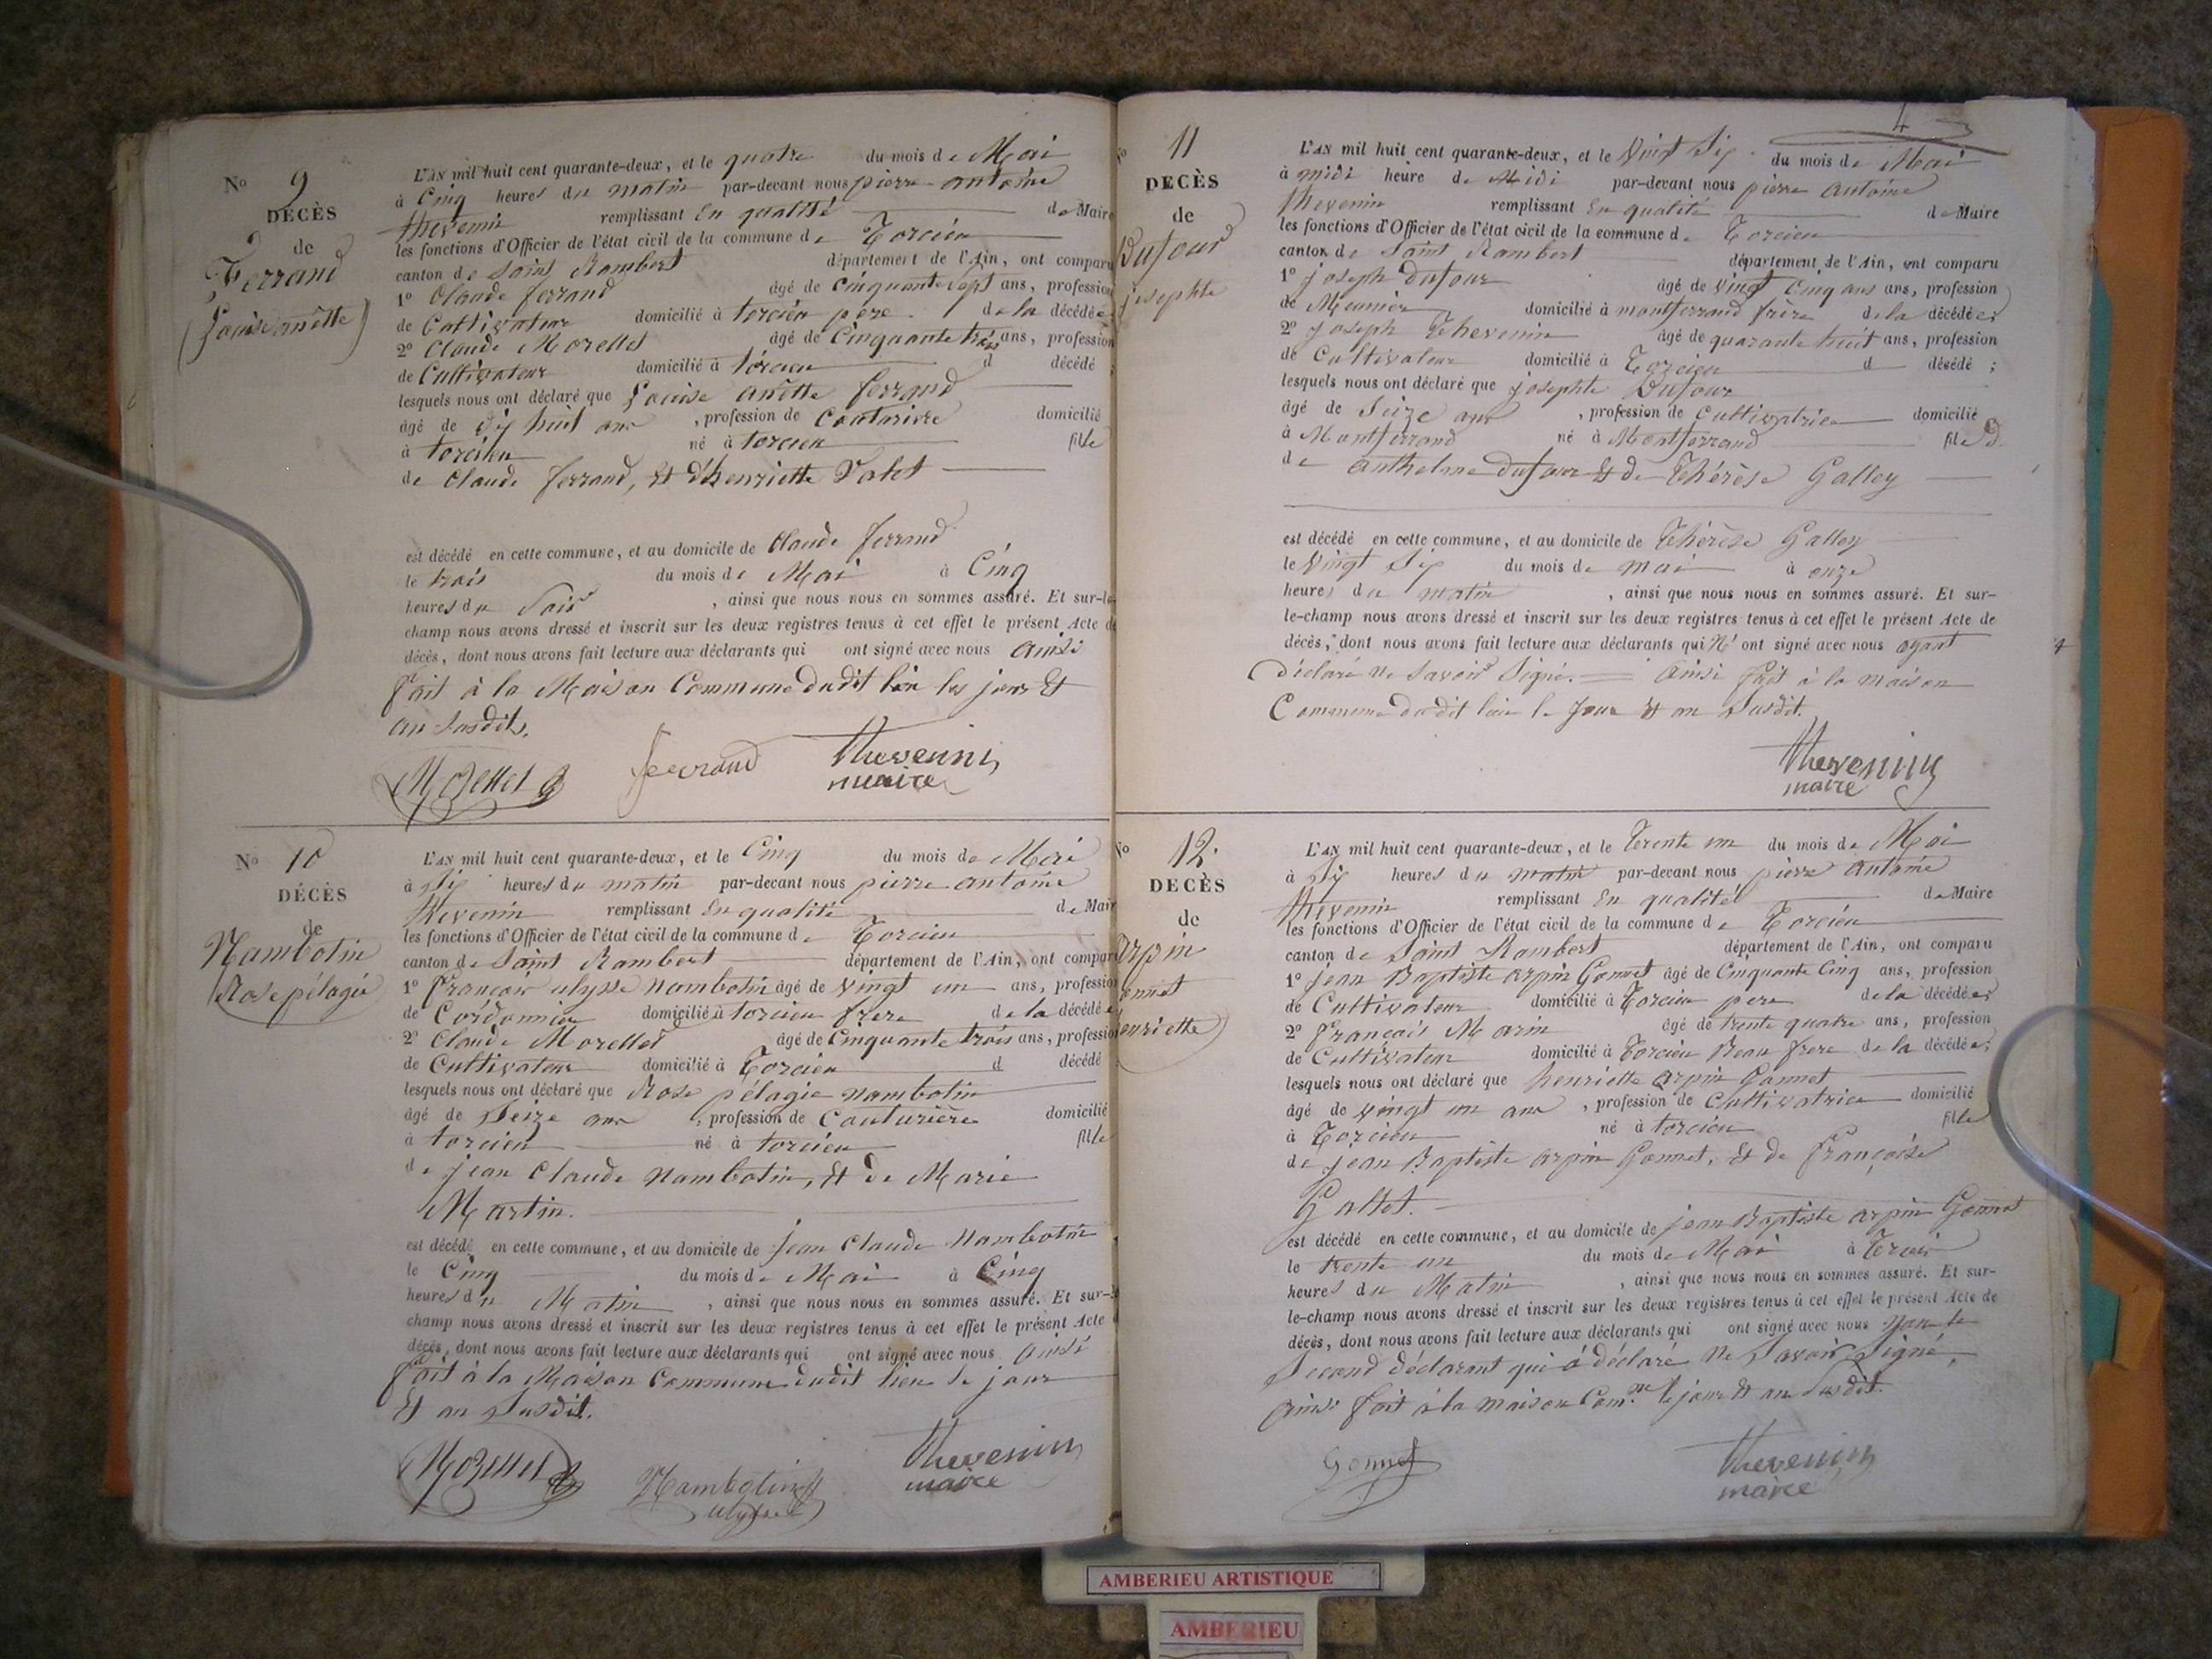 No 9
DÉCÈS
de
Ferrand
(Louise anette)
L'AN mil huit cent quarante-deux, et le quatre du mois de Mai
à Cinq heures du matin par-devant nous pierre antoine
thevenin remplissant En qualité de Maire
les fonctions d'Officier de l'état civil de la commune de Torcieu
canton de Saint Rambert département de l'Ain, ont comparu
1º Claude ferrand âgé de Cinquante Sept ans, profession
de Cultivateur domicilié à torcieu père de la décédée
2º Claude Morellet âgé de Cinquante trois ans, profession
de Cultivateur domicilié à torcieu d décédé ;
lesquels nous ont déclaré que Louise anette ferrand
âgé de dix huit ans , profession de Couturière domicilié
à torcieu né à torcieu fille
de Claude ferrand, et d'henriette Valet
est décédé en cette commune, et au domicile de Claude ferrand
le trois du mois de Mai à Cinq
heures du Soir , ainsi que nous nous en sommes assuré. Et sur-le-
champ nous avons dressé et inscrit sur les deux registres tenus à cet effet le présent Acte de
décès, dont nous avons fait lecture aux déclarants qui ont signé avec nous ainsi
fait à la Maison Commune dudit lieu les jour et
an susdits.
Morellet ferrand thevenin
maire
No 10
DÉCÈS
de
Nambotin
Rose pélagie
L'AN mil huit cent quarante-deux, et le Cinq du mois de Mai
à Six heures du matin par-devant nous pierre antoine
thevenin remplissant En qualité de Mair
les fonctions d'Officier de l'état civil de la commune de Torcieu
canton de Saint Rambert département de l'Ain, ont comparu
1º françois ulysse nambotin âgé de vingt un ans, profession
de Cordonnier domicilié à torcieu frere de la décédée
2º Claude Morellet âgé de Cinquante trois ans, profession
de Cultivateur domicilié à Torcieu d décédé
lesquels nous ont déclaré que Rose pélagie nambotin
âgé de Seize ans , profession de Couturière domicilié
à torcieu né à torcieu fille
de jean Claude nambotin, et de Marie
Martin.
est décédé en cette commune, et au domicile de jean Claude nambotin
le Cinq du mois de Mai à Cinq
heures du Matin , ainsi que nous nous en sommes assuré. Et sur-le
champ nous avons dressé et inscrit sur les deux registres tenus à cet effet le présent Acte d
décès, dont nous avons fait lecture aux déclarants qui ont signé avec nous ainsi
fait à la Maison Commune dudit lieu le jour
Et an susdit.
Morellet Nambotin thevenin
ulysse maire
4
11
DECÈS
de
Dufour
josephte
L'AN mil huit cent quarante-deux, et le Vingt Six du mois de Mai
à midi heure de Midi par-devant nous pierre antoine
thevenin remplissant En qualité de Maire
les fonctions d'Officier de l'état civil de la commune de Torcieu
canton de Saint Rambert département de l'Ain, ont comparu
1º joseph Dufour âgé de vingt Cinq ans ans, profession
de Meunier domicilié à montferrand frère de la décédée;
2º joseph Thevenin âgé de quarante huit ans, profession
de Cultivateur domicilié à Torcieu d décédé ;
lesquels nous ont déclaré que josephte Dufour
âgé de Seize ans , profession de cultivatrice domicilié
à Montferrand né à Montferrand fille
de anthelme Dufour et de Thérèse Galley
est décédé en cette commune, et au domicile de Thérèse Galley
le Vingt Six du mois de mai à onze
heures du matin , ainsi que nous nous en sommes assuré. Et sur-
le-champ nous avons dressé et inscrit sur les deux registres tenus à cet effet le présent Acte de
décès, dont nous avons fait lecture aux déclarants qui N' ont signé avec nous ayant
déclaré ne savoir Signé. ainsi fait à la maison
Commune dudit lieu le jour et an susdit.
thevenin
maire
12.
DECÈS
de
arpin
onnet
enriette
L'AN mil huit cent quarante-deux, et le trente un du mois de Mai
à Six heures du matin par-devant nous pierre antoine
thevenin remplissant En qualité de Maire
les fonctions d'Officier de l'état civil de la commune de Torcieu
canton de Saint Rambert département de l'Ain, ont comparu
1º jean Baptiste arpin Gonnet âgé de Cinquante Cinq ans, profession
de Cultivateur domicilié à Torcieu pere de la décédée;
2º français Marin âgé de trente quatre ans, profession
de Cultivateur domicilié à Torcieu Beau frere de la décédée;
lesquels nous ont déclaré que henriette arpin Gonnet
âgé de vingt un ans , profession de Cultivatrice domicilié
à Torcieu né à torcieu fille
de jean Baptiste arpin Gonnet, et de françoise
Gallet.
est décédé en cette commune, et au domicile de jean Baptiste arpin Gonnet
le trente un du mois de Mai à trois
heures du Matin , ainsi que nous nous en sommes assuré. Et sur-
le-champ nous avons dressé et inscrit sur les deux registres tenus à cet effet le présent Acte de
décès, dont nous avons fait lecture aux déclarants qui ont signé avec nous non le
Second déclarant qui à déclaré ne Savoir Signé,
ainsi fait à la maison Com.ne le jour et an susdit.
Gonnet thevenin
maire
AMBERIEU ARTISTIQUE
AMBERIEU